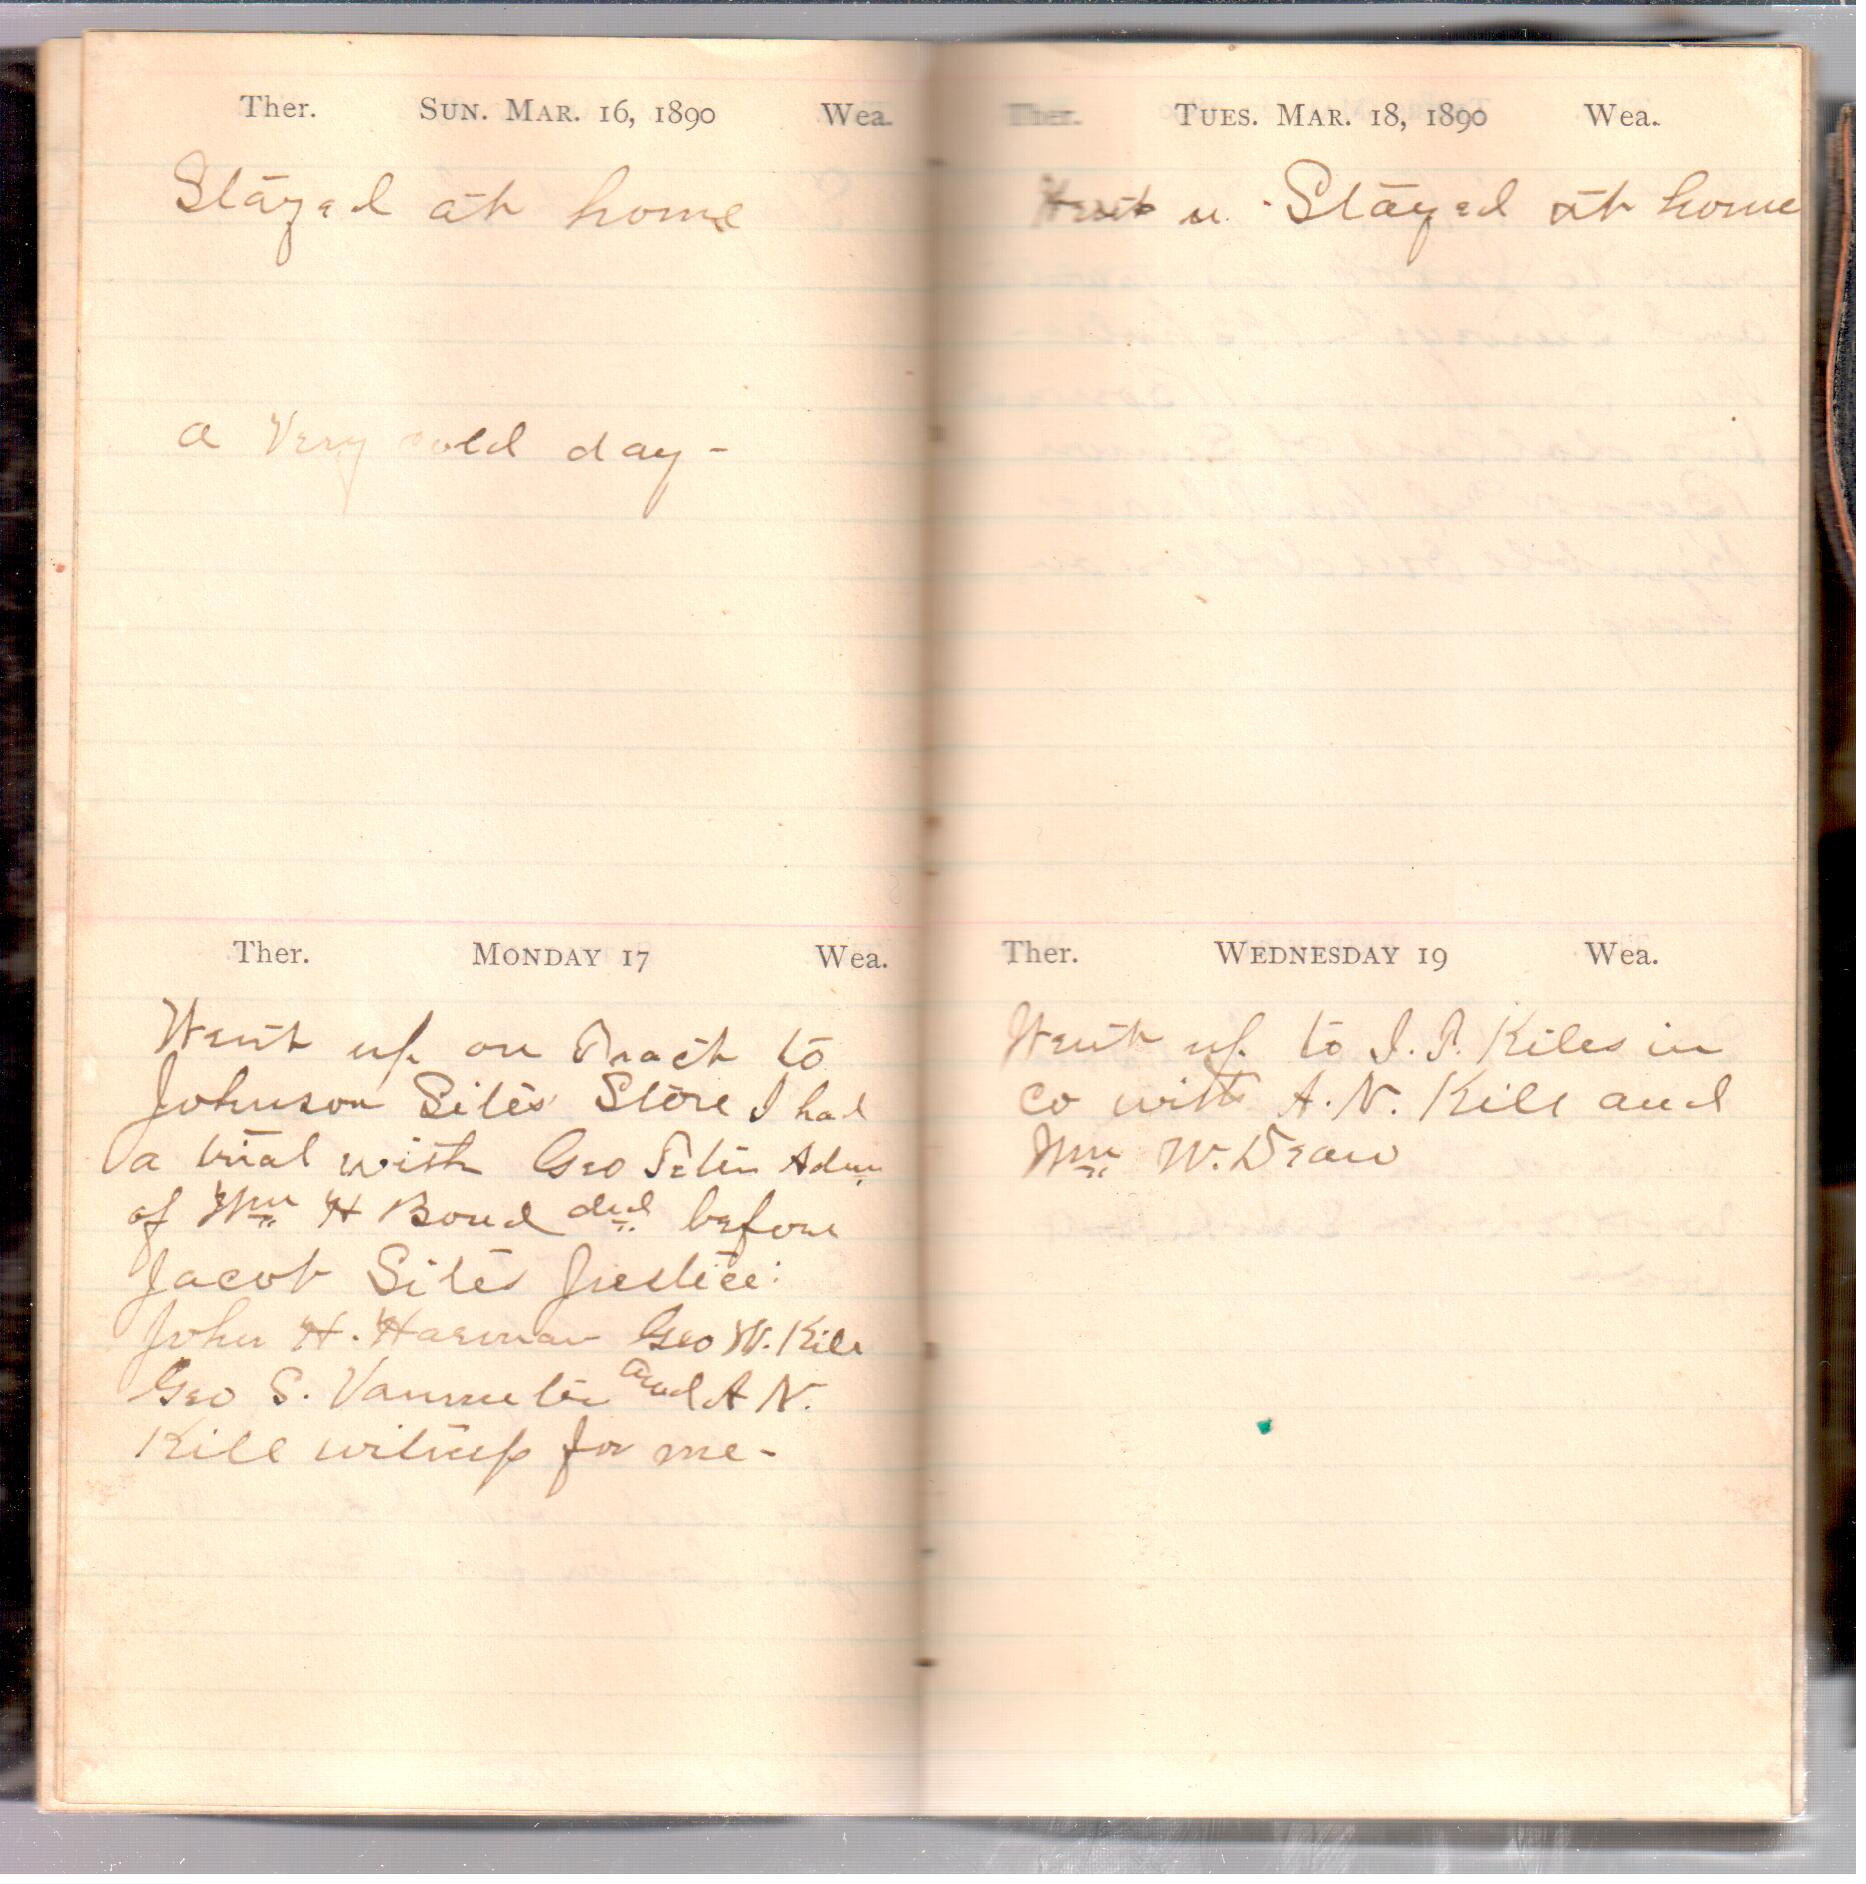 Ther. Sun. Mar. 16, 1890 Wea.
Stayed at home
a Very cold day -
Ther. Monday 17 Wea.
Went up on Tract to
Johnson Sites Store I had
a trial with Geo Teter Adm
of Wm H Bond decd before
Jacob Sites Justice:
John H. Harman Geo W. Kile
Geo S. Vanmeter and A N.
Kile witness for me -
Ther. Tues. Mar. 18, 1890 Wea.
Went u. Stayed at home
Ther. Wednesday 19 Wea.
Went up to I. P. Kiles in
co with A. N. Kile and
Wm W. Dean